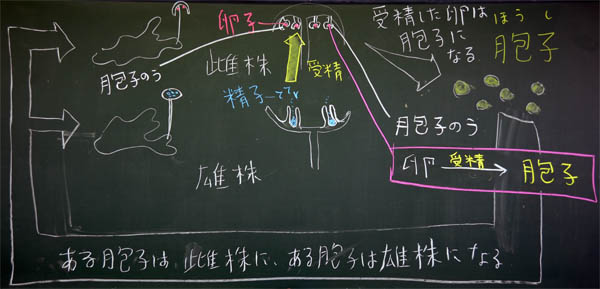 卵子
受精した卵は
胞子に
なる
ほうし
胞子
胞子のう
雌株
受精
精子
胞子のう
卵 受精 胞子
雄株
ある胞子は、雌株に、ある胞子は雄株になる